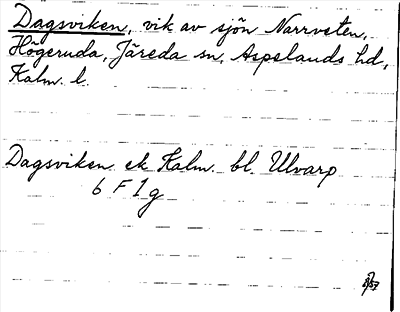 Dagsviken, vik av sjön Narrveten,
Högeruda, Järeda sn, Aspelands hd,
Kalm. l.
Dagsviken ek Kalm. bl. Ulvarp
6 F 1 g